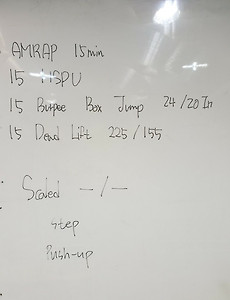 AMRAP 15min
15 HSPU
15 Burpee Box Jump 24/20In
15 Dead Lift 225/155
Scaled -/-
step
Push-up